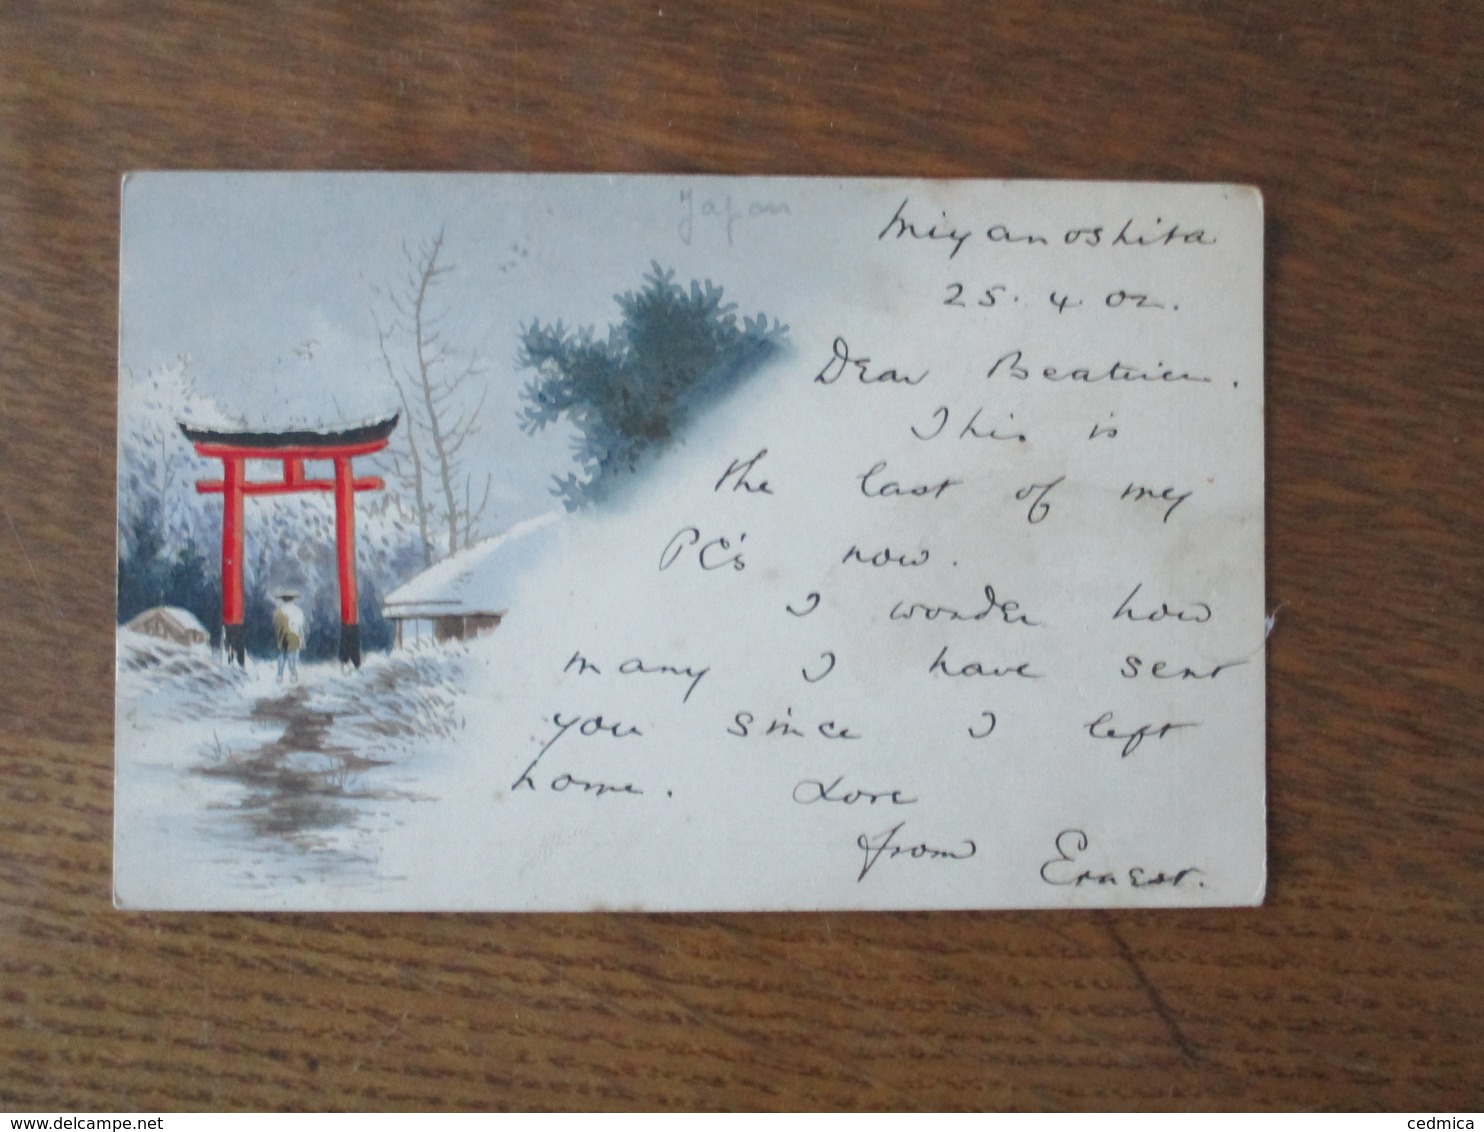 Japan
Miyanoshita
25.4.02.
Dear Beatrice.
This is
the last of my
PC's now.
I wonder how
many I have sent
you since I left
home. Love
from Ernest.
cedmica